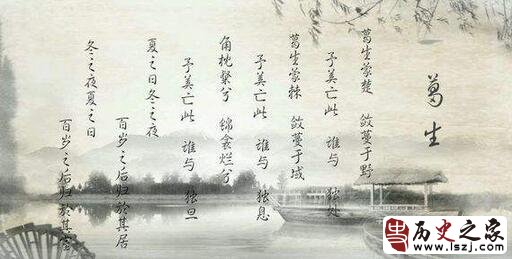 葛生
葛生蒙楚 蔹蔓于野
予美亡此 谁与 独处
葛生蒙棘 蔹蔓于域
予美亡此 谁与 独息
角枕粲兮 锦衾烂兮
予美亡此 谁与 独旦
夏之日冬之夜
百岁之后归於其居
冬之夜夏之日
百岁之后归於其室
历史之家
www.lszj.com